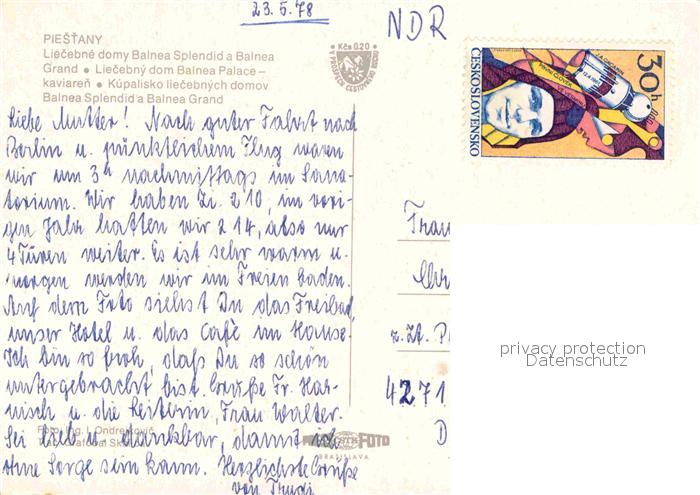 23.5.78
NDR
PIEŠŤANY
Liečebné domy Balnea Splendid a Balnea
Grand • Liečebný dom Balnea Palace –
kaviareň • Kúpalisko liečebných domov
Balnea Splendid a Balnea Grand
Kčs 0,20
30h
ČESKOSLOVENSKO
J.A. GAGARIN
12.4.1961
Liebe Mutter! Nach guter Fahrt nach
Berlin u. pünktlichem Flug waren
wir um 3h nachmittags im Sana-
torium. Wir haben Zi. 210, im vori-
gen Jahr hatten wir 214, also nur
4 Türen weiter. Es ist sehr warm u.
morgen werden wir im Freien baden.
Auf dem Foto siehst Du das Freibad,
unser Hotel u. das Café im Hause.
Ich bin so froh, daß Du so schön
untergebracht bist. Grüße Fr. Har-
nisch u. die Leiterin, Frau Walter.
Sei lieb u. dankbar, damit ich
ohne Sorge sein kann. Herzlichste Grüße
von Trudi
Frau
z. Zt. P
4271
D
Foto: Ing. J. Ondrejkovič
FOTO
BRATISLAVA
privacy protection
Datenschutz